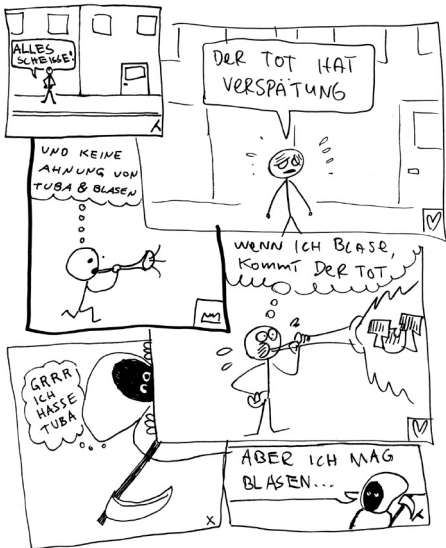 ALLES
SCHEISSE!
DER TOT HAT
VERSPÄTUNG
UND KEINE
AHNUNG VON
TUBA & BLASEN
WENN ICH BLASE,
KOMMT DER TOT
GRRR
ICH
HASSE
TUBA
ABER ICH MAG
BLASEN...
X